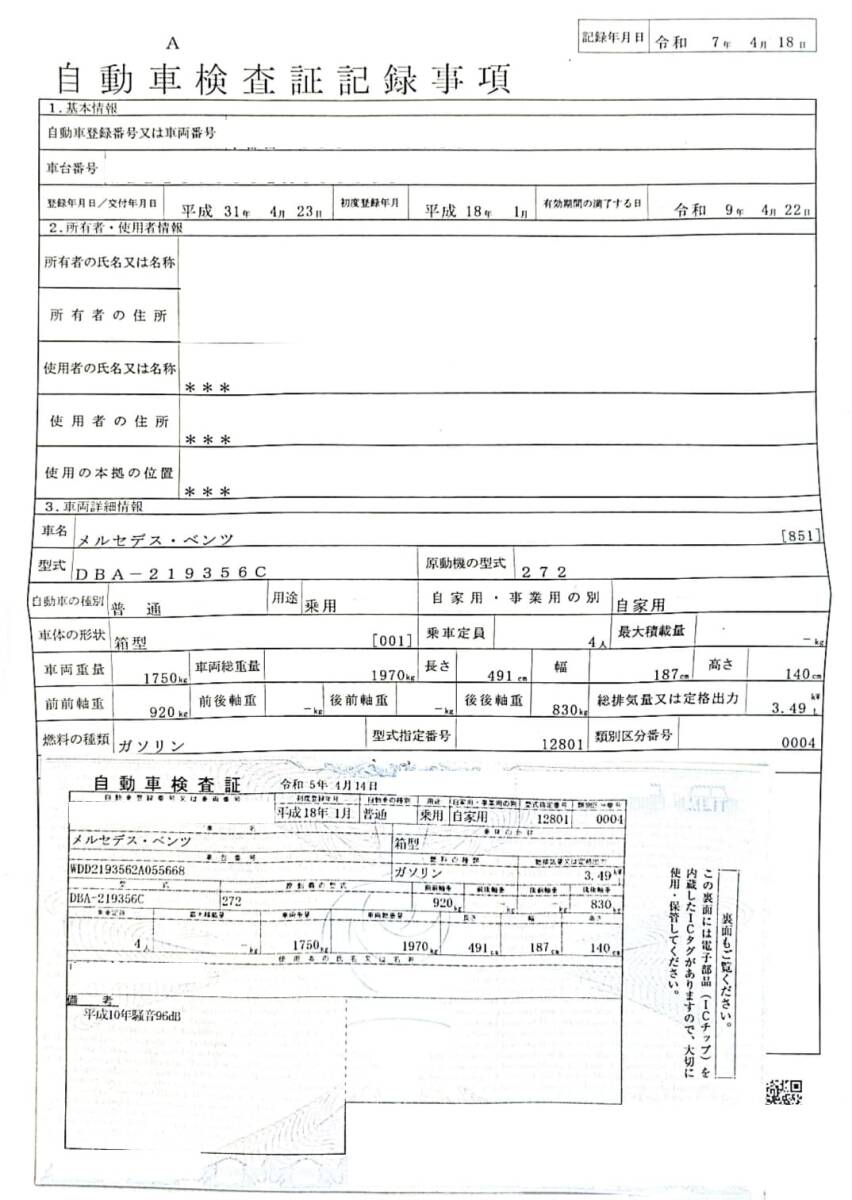 記録年月日 令和 7年 4月 18日
A
自動車検査証記録事項
1.基本情報
自動車登録番号又は車両番号
車台番号
登録年月日/交付年月日 平成 31年 4月 23日 初度登録年月 平成 18年 1月 有効期間の満了する日 令和 9年 4月 22日
2.所有者・使用者情報
所有者の氏名又は名称
所有者の住所
使用者の氏名又は名称 ***
使用者の住所 ***
使用の本拠の位置 ***
3.車両詳細情報
車名 メルセデス・ベンツ [851]
型式 DBA-219356C 原動機の型式 272
自動車の種別 普通 用途 乗用 自家用・事業用の別 自家用
車体の形状 箱型 [001] 乗車定員 4人 最大積載量 -kg
車両重量 1750kg 車両総重量 1970kg 長さ 491cm 幅 187cm 高さ 140cm
前前軸重 920kg 前後軸重 -kg 後前軸重 -kg 後後軸重 830kg 総排気量又は定格出力 3.49 kW L
燃料の種類 ガソリン 型式指定番号 12801 類別区分番号 0004
自動車検査証 令和 5年 4月14日
自動車登録番号又は車両番号 初度登録年月 自動車の種別 用途 自家用・事業用の別 型式指定番号 類別区分番号
平成18年 1月 普通 乗用 自家用 12801 0004
車名 車体の形状
メルセデス・ベンツ 箱型
車台番号 燃料の種類 総排気量又は定格出力
WDD2193562A055668 ガソリン 3.49
型式 原動機の型式 前前軸重 前後軸重 後前軸重 後後軸重
DBA-219356C 272 920kg -kg -kg 830kg
乗車定員 最大積載量 車両重量 車両総重量 長さ 幅 高さ
4人 -kg 1750kg 1970kg 491cm 187cm 140cm
使用者の氏名又は名称
備考
平成10年騒音96dB
裏面もご覧ください。
この裏面には電子部品(ICチップ)を
内蔵したICタグがありますので、大切に
使用・保管してください。